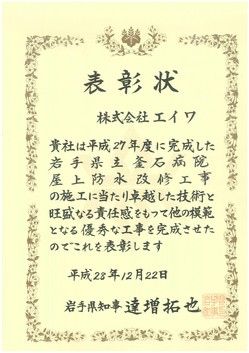 表彰状
株式会社エイワ
貴社は平成27年度に完成した
岩手県立釜石病院
屋上防水改修工事
の施工に当たり卓越した技術と
旺盛なる責任感をもって他の模範
となる優秀な工事を完成させた
のでこれを表彰します
平成28年12月22日
岩手県知事 達増拓也